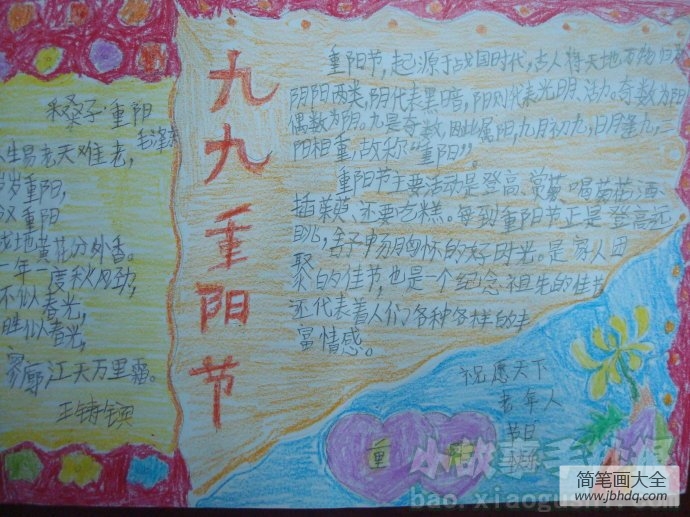 采桑子·重阳
毛泽东
人生易老天难老,
岁岁重阳,
今又重阳
战地黄花分外香。
一年一度秋风劲,
不似春光,
胜似春光,
寥廓江天万里霜。
九九重阳节
重阳节,起源于战国时代,古人将天地万物归为
阴阳两类,阴代表黑暗,阳则代表光明、活力。奇数为阳
偶数为阴。九是奇数,因此属阳,九月初九,日月逢九,二
阳相重,故称“重阳”。
重阳节主要活动是登高、赏菊、喝菊花酒、
插茱萸、还要吃糕。每到重阳节正是登高远
眺,舒畅胸怀的好时光。是家人团
聚的佳节,也是一个纪念祖先的佳节
还代表着人们各种各样的丰
富情感。
祝愿天下
老年人
节日
快乐
重 阳
小故事手抄报
bao.xiaogushi.com
简笔画大全
www.jbhdq.com